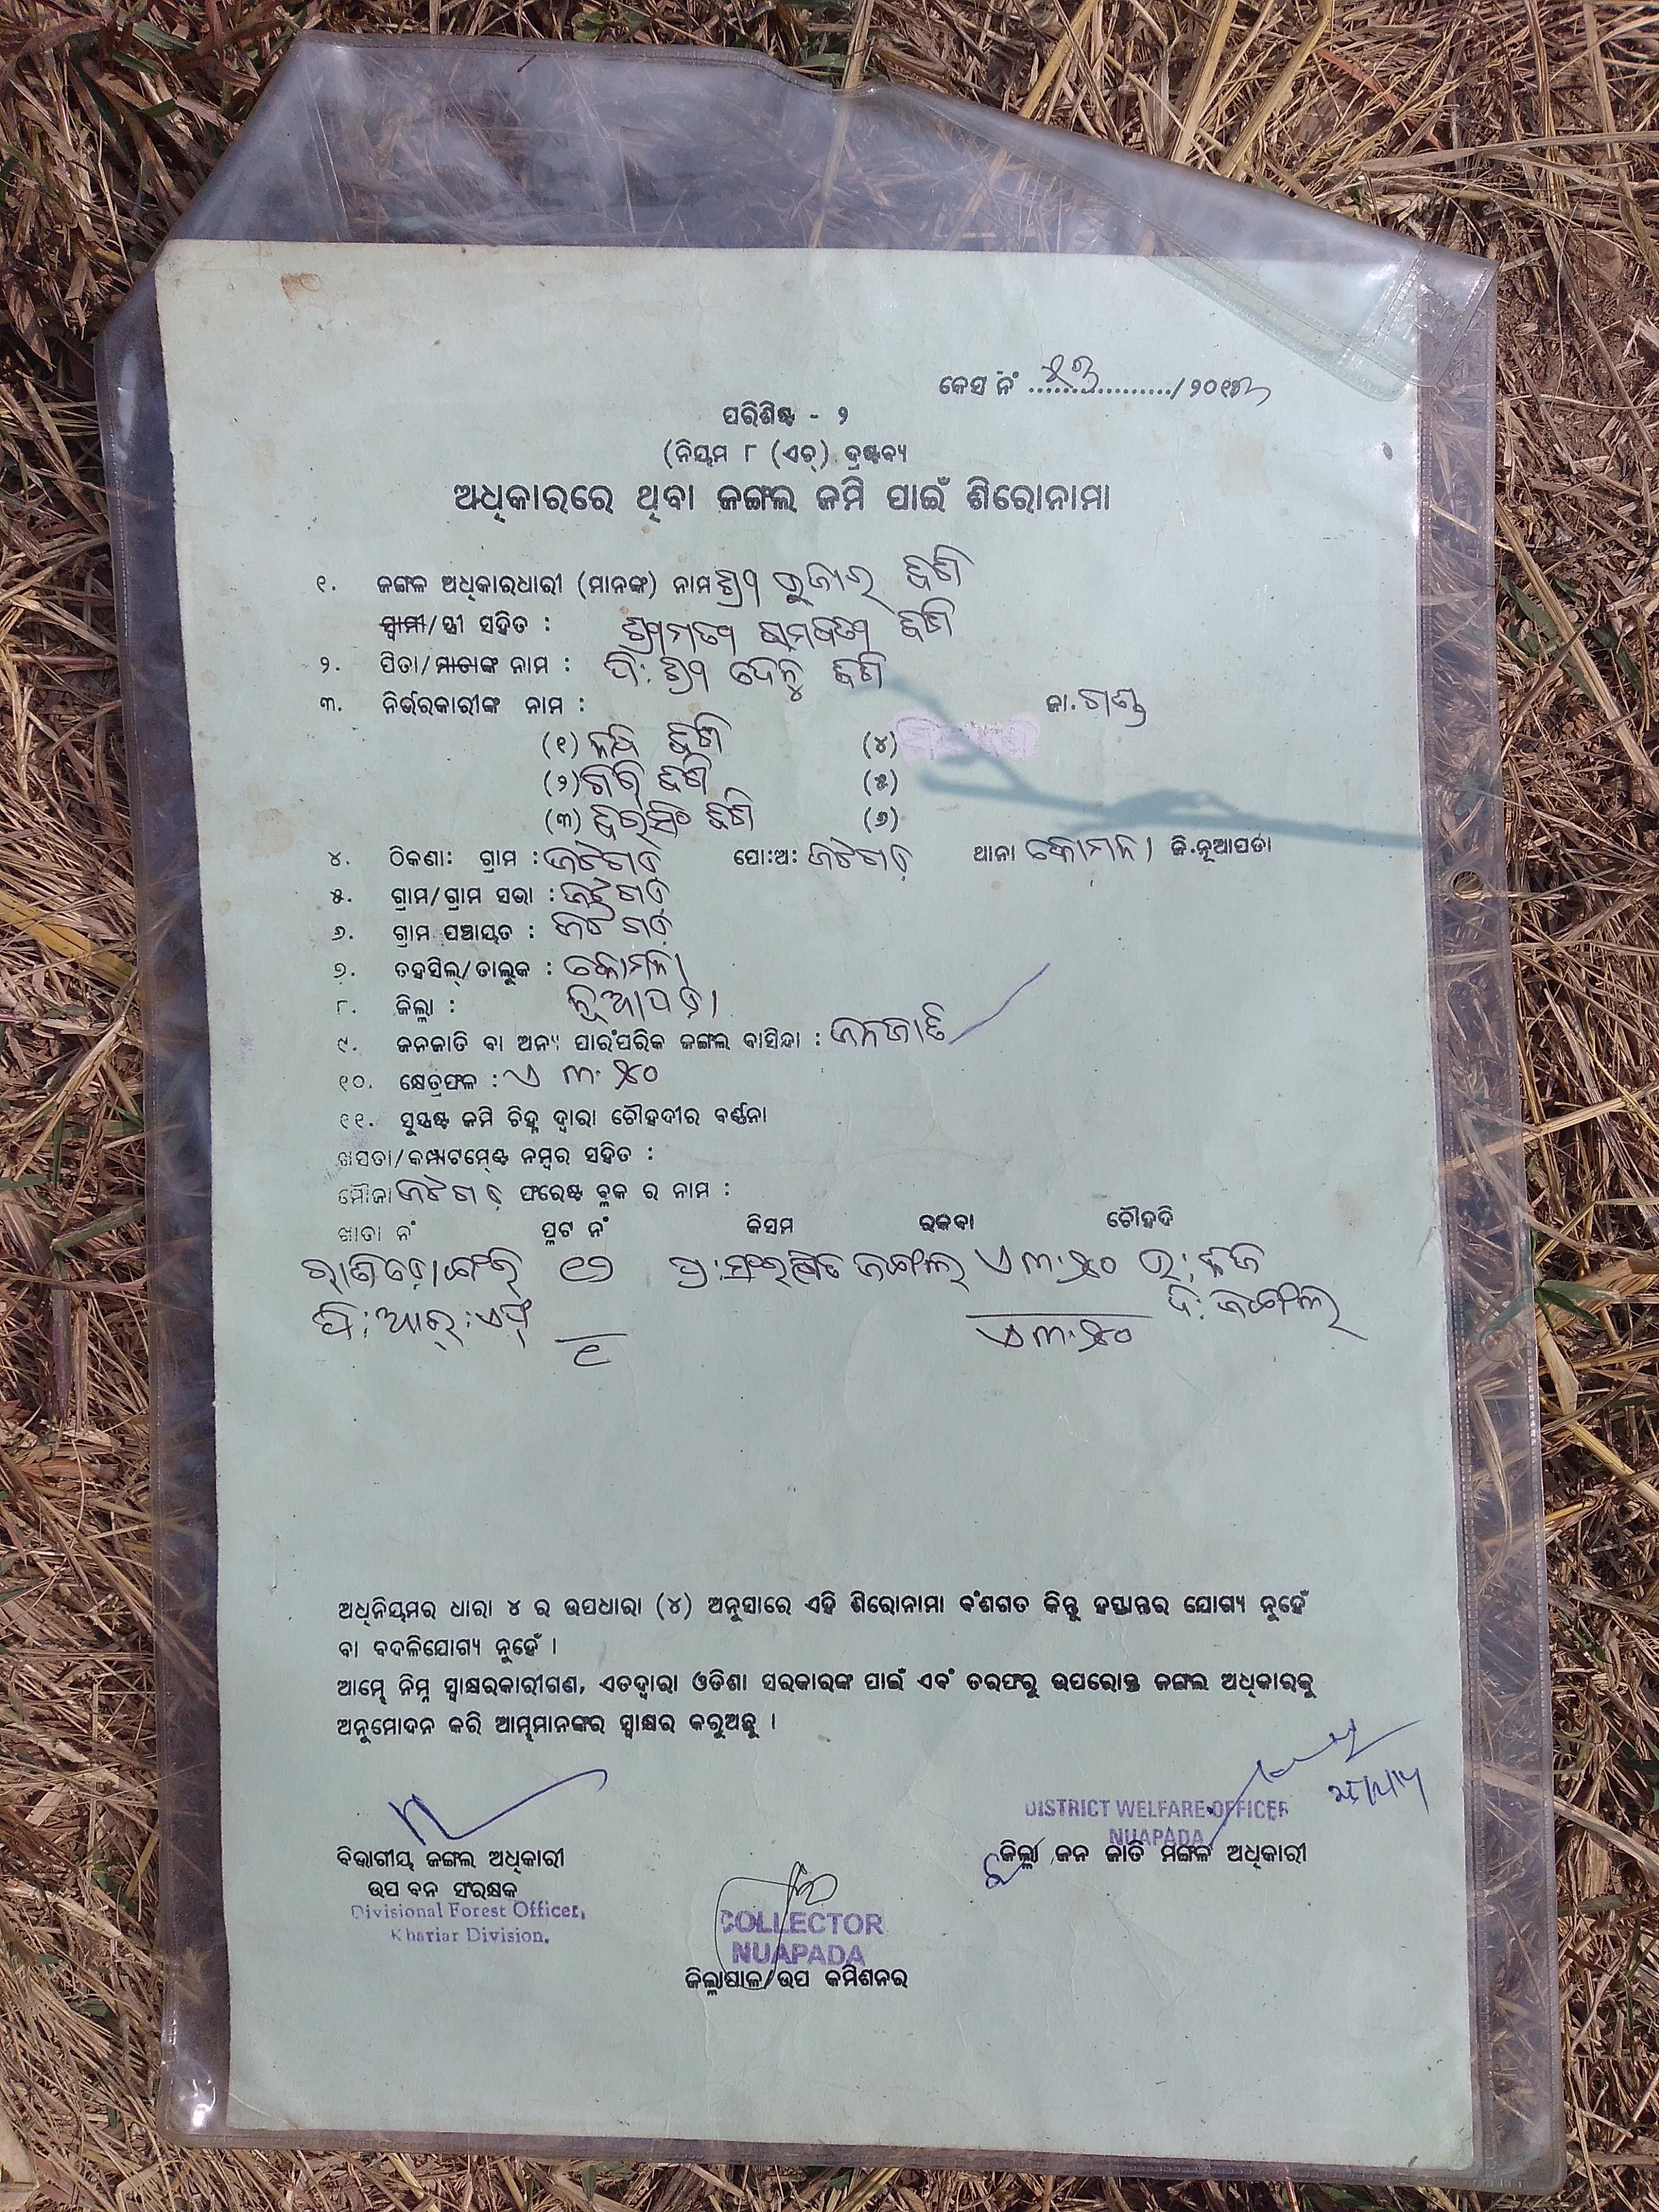 କେସ ନଂ ୫୩ /୨୦୧୩
ପରିଶିଷ୍ଟ - ୨
(ନିୟମ ୮ (ଏଚ୍) ଦ୍ରଷ୍ଟବ୍ୟ
ଅଧିକାରରେ ଥିବା ଜଙ୍ଗଲ ଜମି ପାଇଁ ଶିରୋନାମା
୧. ଜଙ୍ଗଲ ଅଧିକାରଧାରୀ (ମାନଙ୍କ) ନାମ ଶ୍ରୀ
ସ୍ବାମୀ/ସ୍ତ୍ରୀ ସହିତ : ଶ୍ରୀମତୀ
୨. ପିତା/ମାତାଙ୍କ ନାମ : ପି: ଶ୍ରୀ
୩. ନିର୍ଭରକାରୀଙ୍କ ନାମ : ଜା. ଗଣ୍ଡ
(୧) (୪)
(୨) (୫)
(୩) (୬)
୪. ଠିକଣା: ଗ୍ରାମ : ଜଟଗଡ଼ ପୋ:ଅ: ଜଟଗଡ଼ ଥାନା କୋମନା ଜି.ନୂଆପଡା
୫. ଗ୍ରାମ/ଗ୍ରାମ ସଭା : ଜଟଗଡ଼
୬. ଗ୍ରାମ ପଞ୍ଚାୟତ : ଜଟଗଡ଼
୭. ତହସିଲ୍/ତାଲୁକ : କୋମନା
୮. ଜିଲ୍ଲା : ନୂଆପଡ଼ା
୯. ଜନଜାତି ବା ଅନ୍ୟ ପାରଂପରିକ ଜଙ୍ଗଲ ବାସିନ୍ଦା : ଜନଜାତି
୧୦. କ୍ଷେତ୍ରଫଳ : ଏ ୩.୫୦
୧୧. ସୁସ୍ପଷ୍ଟ ଜମି ଚିହ୍ନ ଦ୍ୱାରା ଚୌହଦୀର ବର୍ଣ୍ଣନା
ଖସଡା/କମ୍ପାଟମେଣ୍ଟ ନମ୍ବର ସହିତ :
ମୌଜା ଜଟଗଡ଼ ଫରେଷ୍ଟ ବ୍ଲକ ର ନାମ :
ଖାତା ନଂ ପ୍ଲଟ ନଂ କିସମ ରକବା ଚୌହଦି
୧୭ ପ୍ର: ସଂରକ୍ଷିତ ଜଙ୍ଗଲ ଏ ୩.୫୦ ଉ:
ପି:ଆର୍:ଏଫ୍ ୧ ଏ ୩.୫୦ ଦ: ଜଙ୍ଗଲ
ଅଧିନିୟମର ଧାରା ୪ ର ଉପଧାରା (୪) ଅନୁସାରେ ଏହି ଶିରୋନାମା ବଂଶଗତ କିନ୍ତୁ ହସ୍ତାନ୍ତର ଯୋଗ୍ୟ ନୁହେଁ
ବା ବଦଳିଯୋଗ୍ୟ ନୁହେଁ ।
ଆମ୍ଭେ ନିମ୍ନ ସ୍ୱାକ୍ଷରକାରୀଗଣ, ଏତଦ୍ୱାରା ଓଡିଶା ସରକାରଙ୍କ ପାଇଁ ଏବଂ ତରଫରୁ ଉପରୋକ୍ତ ଜଙ୍ଗଲ ଅଧିକାରକୁ
ଅନୁମୋଦନ କରି ଆମ୍ଭମାନଙ୍କର ସ୍ୱାକ୍ଷର କରୁଅଛୁ ।
DISTRICT WELFARE OFFICER
NUAPADA
ଜିଲ୍ଲା ଜନ ଜାତି ମଙ୍ଗଳ ଅଧିକାରୀ
ବିଭାଗୀୟ ଜଙ୍ଗଲ ଅଧିକାରୀ
ଉପ ବନ ସଂରକ୍ଷକ
Divisional Forest Officer,
Khariar Division.
COLLECTOR
NUAPADA
ଜିଲ୍ଲାପାଳ/ଉପ କମିଶନର